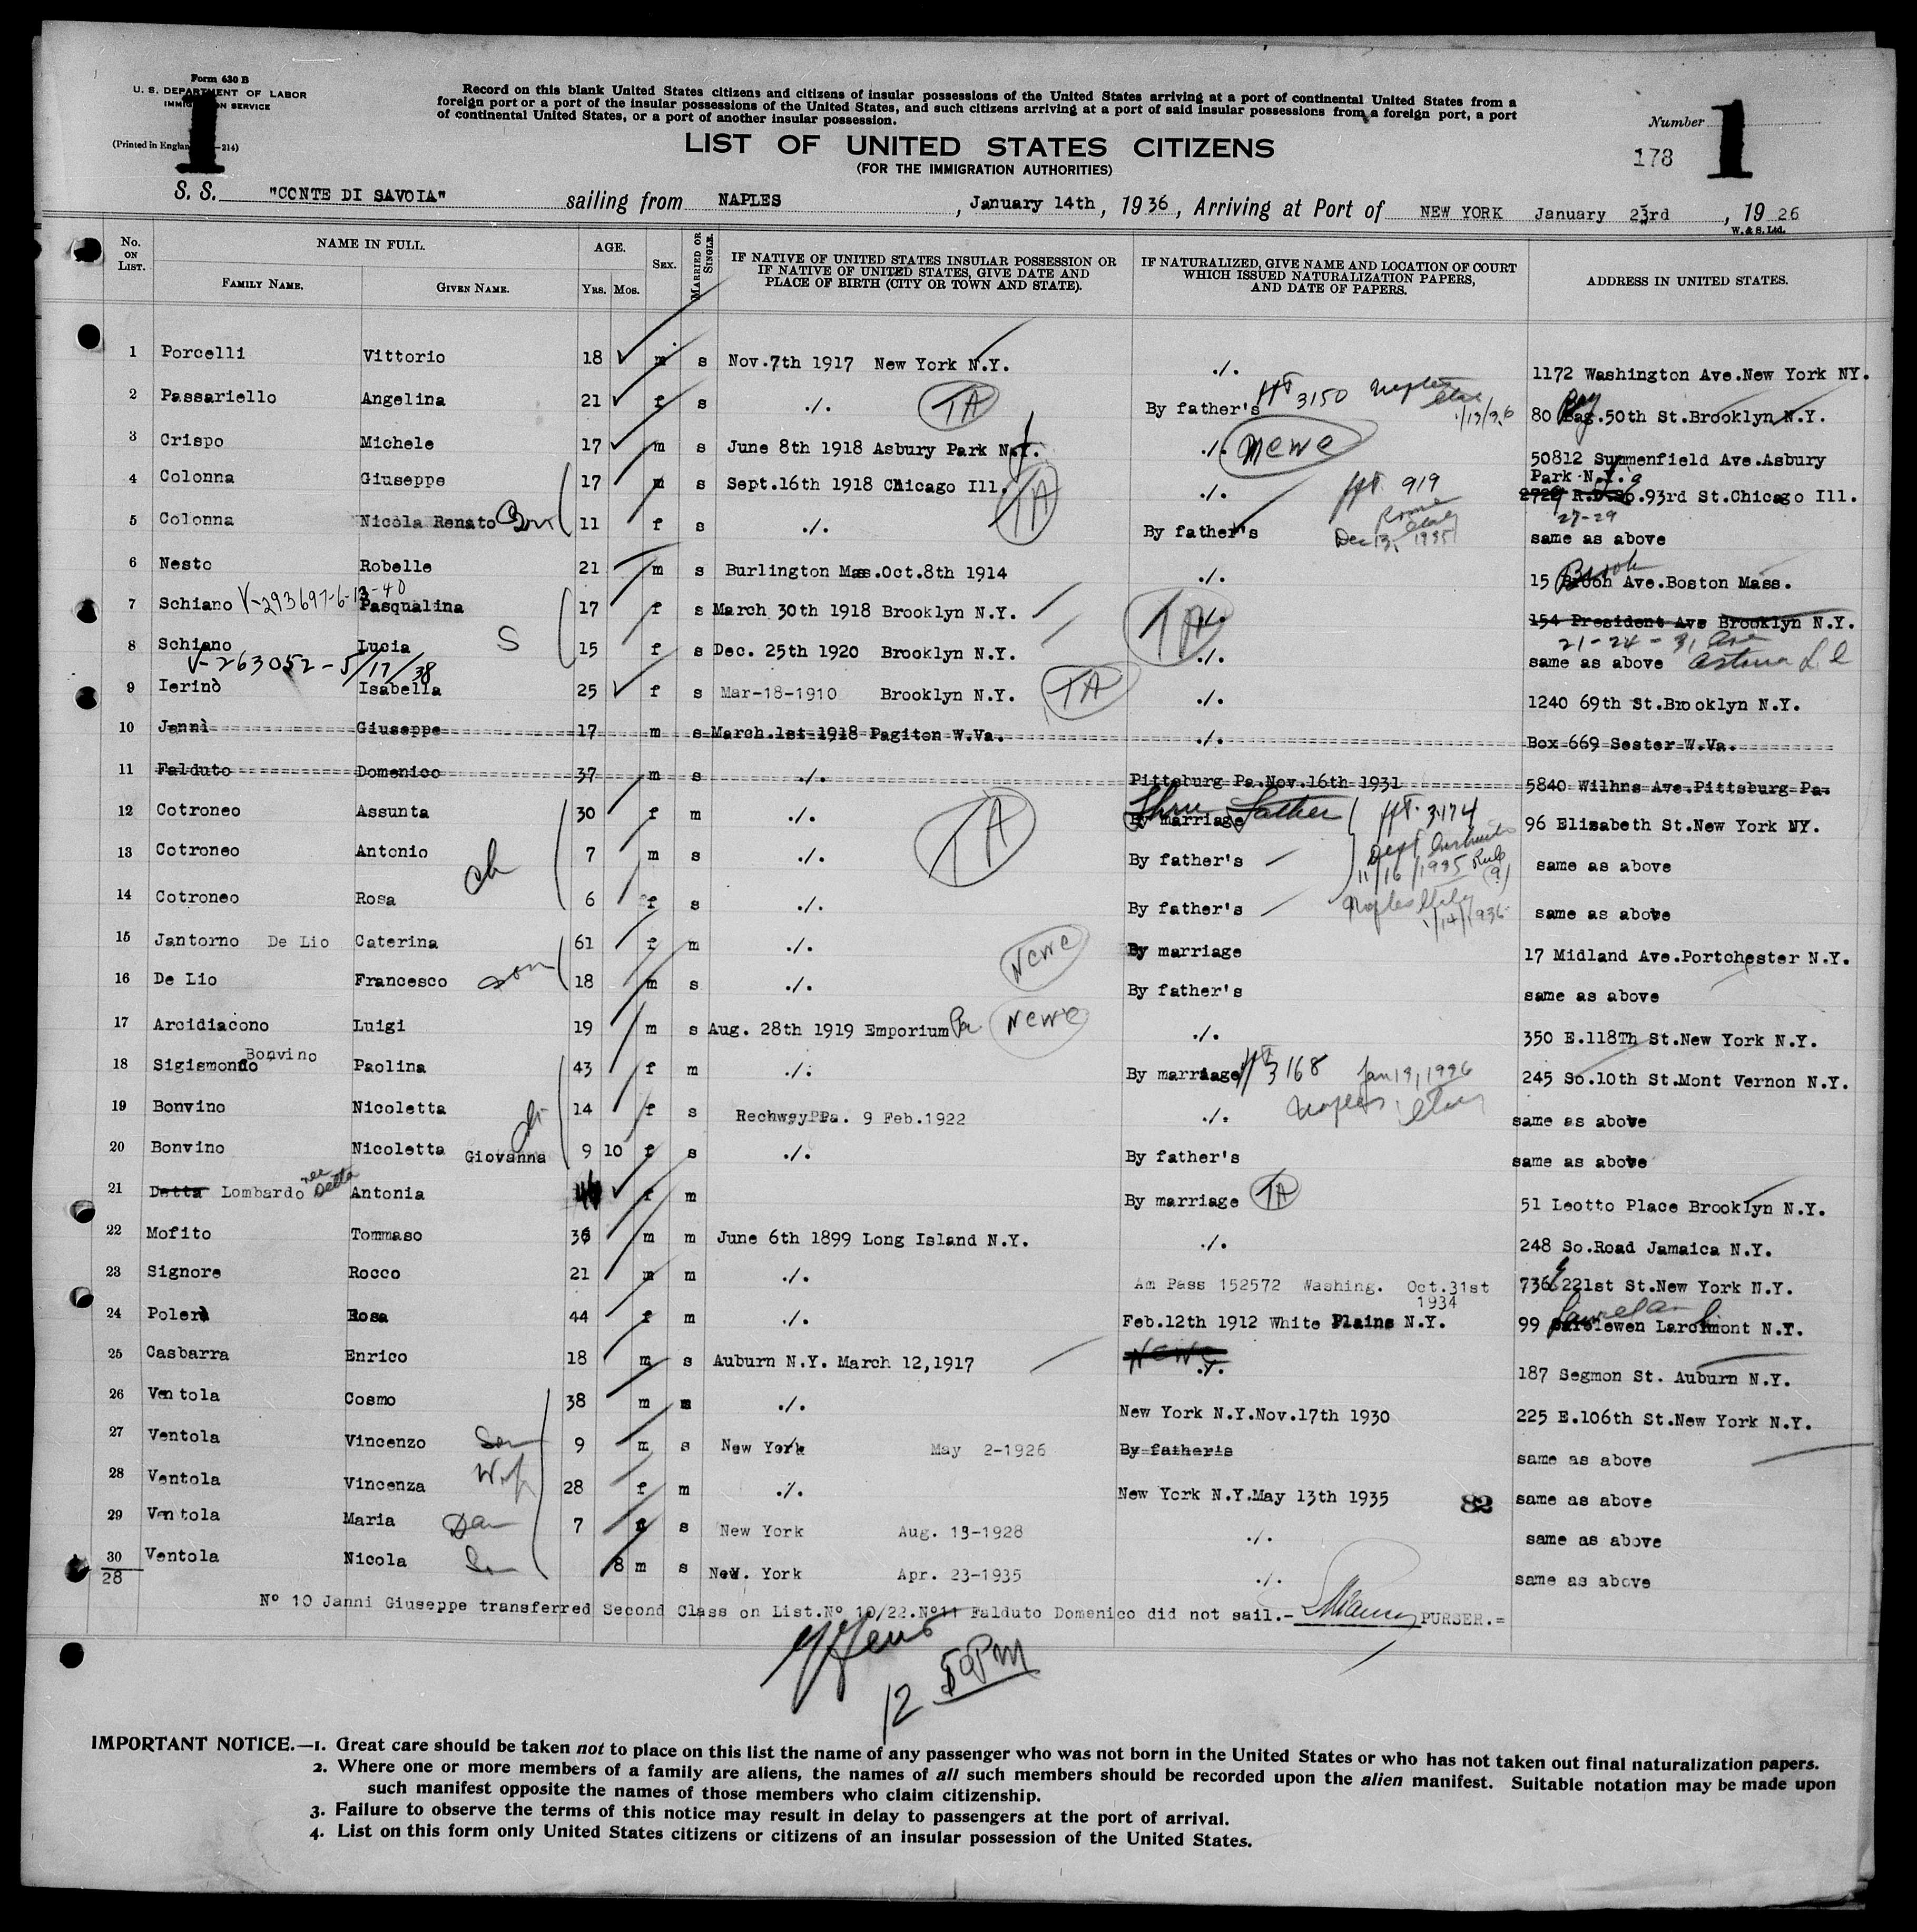 Form 630 B
U. S. DEPARTMENT OF LABOR
IMMIGRATION SERVICE
(Printed in England -214)
1
Record on this blank United States citizens and citizens of insular possessions of the United States arriving at a port of continental United States from a
foreign port or a port of the insular possessions of the United States, and such citizens arriving at a port of said insular possessions from a foreign port, a port
of continental United States, or a port of another insular possession.
LIST OF UNITED STATES CITIZENS
(FOR THE IMMIGRATION AUTHORITIES)
Number 1
178
S. S. "CONTE DI SAVOIA" sailing from NAPLES, January 14th, 1936, Arriving at Port of NEW YORK January 23rd, 1926
W. & S. Ltd.
No. ON LIST. NAME IN FULL. FAMILY NAME. GIVEN NAME. AGE. YRS. MOS. SEX. MARRIED OR SINGLE. IF NATIVE OF UNITED STATES INSULAR POSSESSION OR IF NATIVE OF UNITED STATES, GIVE DATE AND PLACE OF BIRTH (CITY OR TOWN AND STATE). IF NATURALIZED, GIVE NAME AND LOCATION OF COURT WHICH ISSUED NATURALIZATION PAPERS, AND DATE OF PAPERS. ADDRESS IN UNITED STATES.
1 Porcelli Vittorio 18 m s Nov.7th 1917 New York N.Y. ./. 1172 Washington Ave.New York NY.
2 Passariello Angelina 21 f s ./. TA By father's HT 3150 Naples 1/13/36 80 Bay.50th St.Brooklyn N.Y.
3 Crispo Michele 17 m s June 8th 1918 Asbury Park N.J. ./. NewC 50812 Summenfield Ave.Asbury Park N.J.
4 Colonna Giuseppe 17 m s Sept.16th 1918 Chicago Ill. TA ./. HT. 919 Rome Italy Dec 13, 1935 2729 .93rd St.Chicago Ill.
27-29
5 Colonna Nicola Renato 11 f s ./. By father's same as above
6 Nesto Robelle 21 m s Burlington Mas.Oct.8th 1914 ./. 15 Brook Ave.Boston Mass.
7 Schiano V-293697-6-13-40 Pasqualina 17 f s March 30th 1918 Brooklyn N.Y. TA ./. 154 President Ave Brooklyn N.Y.
21-24-31 Ave Astoria L I
8 Schiano Lucia S 15 f s Dec. 25th 1920 Brooklyn N.Y. ./. same as above
V-263052-5/17/38
9 Ierinò Isabella 25 f s Mar-18-1910 Brooklyn N.Y. TA ./. 1240 69th St.Brooklyn N.Y.
10 Jannì Giuseppe 17 m s March.1st 1918 Pagiton W.Va. ./. Box 669 Sester W.Va.
11 Falduto Domenico 37 m s ./. Pittsburg Pa.Nov.16th 1931 5840 Wilhns Ave.Pittsburg Pa.
12 Cotroneo Assunta 30 f m ./. TA By marriage Thru Father HT. 3174 96 Elisabeth St.New York NY.
13 Cotroneo Antonio ch 7 m s ./. By father's Dept 11/16/1935 Rule (9) same as above
14 Cotroneo Rosa 6 f s ./. By father's Naples Italy 1/14/1936 same as above
15 Jantorno De Lio Caterina 61 f m ./. NewC By marriage 17 Midland Ave.Portchester N.Y.
16 De Lio Francesco son 18 m s ./. By father's same as above
17 Arcidiacono Luigi 19 m s Aug. 28th 1919 Emporium Pa NewC ./. 350 E.118Th St.New York N.Y.
18 Sigismondo Bonvino Paolina 43 f m ./. By marriage HT 3168 Jan 19, 1936 Naples Italy 245 So.10th St.Mont Vernon N.Y.
19 Bonvino Nicoletta 14 f s Rechwsy Pa. 9 Feb.1922 ./. same as above
20 Bonvino Nicoletta Giovanna 9 10 f s ./. By father's same as above
21 Detta Lombardo nee Detta Antonia f m By marriage TA 51 Leotto Place Brooklyn N.Y.
22 Mofito Tommaso 36 m m June 6th 1899 Long Island N.Y. ./. 248 So.Road Jamaica N.Y.
23 Signore Rocco 21 m m ./. Am Pass 152572 Washing. Oct.31st 1934 736 E 221st St.New York N.Y.
24 Polerà Rosa 44 f m ./. Feb.12th 1912 White Plains N.Y. 99 Larchmont N.Y.
25 Casbarra Enrico 18 m s Auburn N.Y. March 12,1917 NewC .Y. 187 Segmon St. Auburn N.Y.
26 Ventola Cosmo 38 m m ./. New York N.Y.Nov.17th 1930 225 E.106th St.New York N.Y.
27 Ventola Vincenzo Son 9 m s New York May 2-1926 By father's same as above
28 Ventola Vincenza Wife 28 f m ./. New York N.Y.May 13th 1935 82 same as above
29 Ventola Maria Dau 7 f s New York Aug. 13-1928 ./. same as above
30 Ventola Nicola Son 8 m s New. York Apr. 23-1935 ./. same as above
28
Nº 10 Janni Giuseppe transferred Second Class on List.Nº 10/22.Nº11 Falduto Domenico did not sail.- PURSER.=
12 50PM
IMPORTANT NOTICE.—1. Great care should be taken not to place on this list the name of any passenger who was not born in the United States or who has not taken out final naturalization papers.
2. Where one or more members of a family are aliens, the names of all such members should be recorded upon the alien manifest. Suitable notation may be made upon
such manifest opposite the names of those members who claim citizenship.
3. Failure to observe the terms of this notice may result in delay to passengers at the port of arrival.
4. List on this form only United States citizens or citizens of an insular possession of the United States.